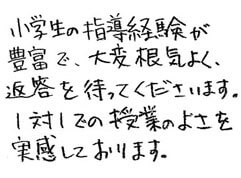 小学生の指導経験が
豊富で、大変根気よく、
返答を待ってくださいます。
1対1での授業のよさを
実感しております。